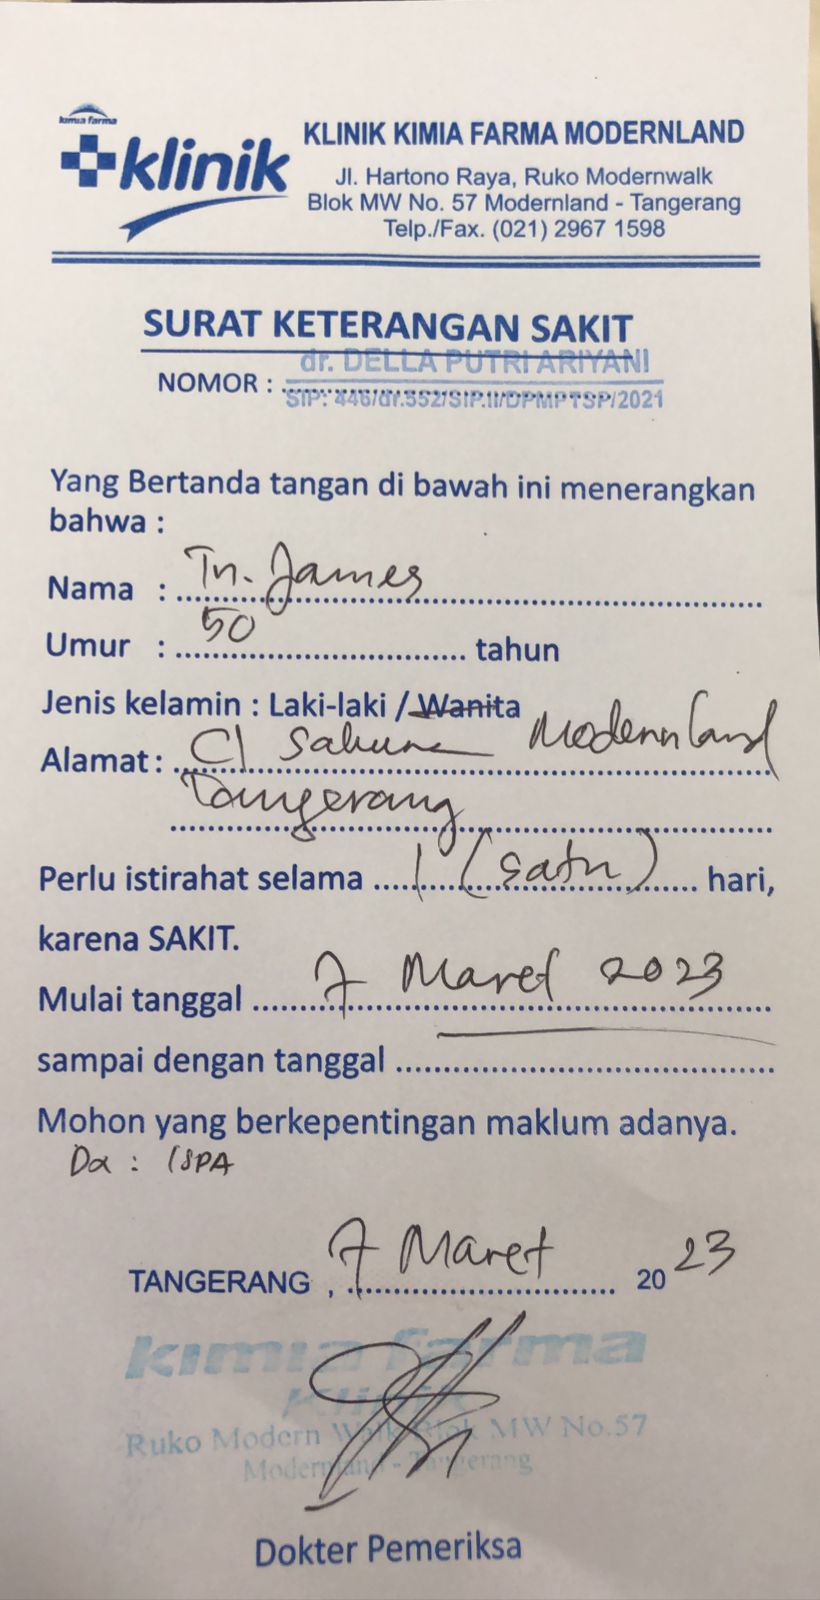 kimia farma
klinik
KLINIK KIMIA FARMA MODERNLAND
Jl. Hartono Raya, Ruko Modernwalk
Blok MW No. 57 Modernland - Tangerang
Telp./Fax. (021) 2967 1598
SURAT KETERANGAN SAKIT
dr. DELLA PUTRI ARIYANI
NOMOR :
SIP: 446/dr.552/SIP.II/DPMPTSP/2021
Yang Bertanda tangan di bawah ini menerangkan
bahwa :
Nama : Tn. James
Umur : 50 tahun
Jenis kelamin : Laki-laki / Wanita
Alamat : Modernland
Tangerang
Perlu istirahat selama 1 (satu) hari,
karena SAKIT.
Mulai tanggal 7 Maret 2023
sampai dengan tanggal
Mohon yang berkepentingan maklum adanya.
Dx : ISPA
TANGERANG , 7 Maret 2023
kimia farma
Klinik
Ruko Modern Walk Blok MW No.57
Modernland - Tangerang
Dokter Pemeriksa